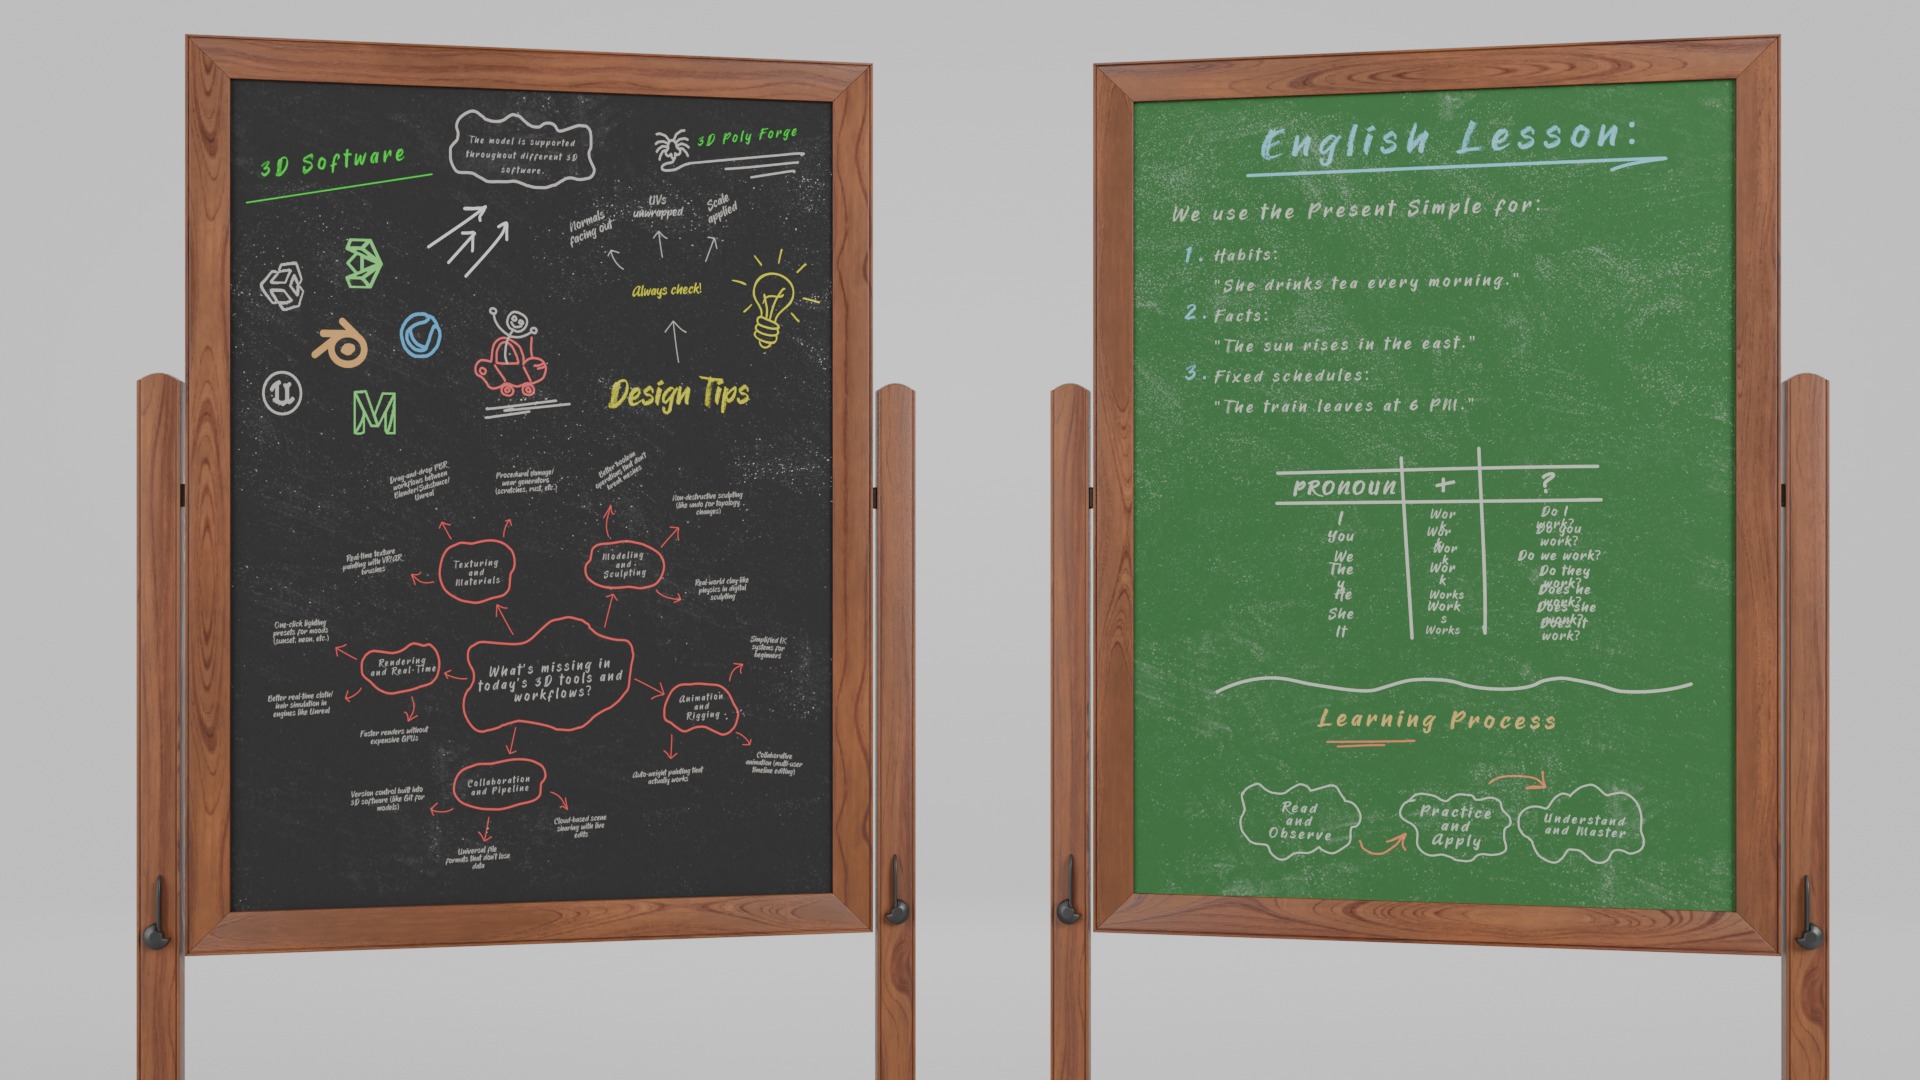 3D Software
The model is supported
throughout different 3D
software.
3D Poly Forge
Normals
facing out
UVs
unwrapped
Scale
applied
Always check!
Design Tips
Drag-and-drop PBR
workflows between
Blender/Substance/
Unreal
Procedural damage/
wear generators
(scratches, rust, etc.)
Better boolean
operations that don't
break meshes
Non-destructive sculpting
(like undo for topology
changes)
Real-time texture
painting with VR/AR
brushes
Texturing
and
Materials
Modeling
and
Sculpting
Real-world clay-like
physics in digital
sculpting
One-click lighting
presets for moods
(sunset, neon, etc.)
Rendering
and Real-Time
What's missing in
today's 3D tools and
workflows?
Simplified IK
systems for
beginners
Animation
and
Rigging
Better real-time cloth/
hair simulation in
engines like Unreal
Faster renders without
expensive GPUs
Auto-weight painting that
actually works
Collaborative
animation (multi-user
timeline editing)
Collaboration
and Pipeline
Version control built into
3D software (like Git for
models)
Cloud-based scene
sharing with live
edits
Universal file
formats that don't lose
data
English Lesson:
We use the Present Simple for:
1. Habits:
"She drinks tea every morning."
2. Facts:
"The sun rises in the east."
3. Fixed schedules:
"The train leaves at 6 PM."
PRONOUN + ?
I
You
We
The
y
He
She
It
Wor
k
Wor
k
Wor
k
Wor
k
Works
Work
s
Works
Do I
work?
Do you
work?
Do we work?
Do they
work?
Does he
work?
Does she
work?
Does it
work?
Learning Process
Read
and
Observe
Practice
and
Apply
Understand
and Master